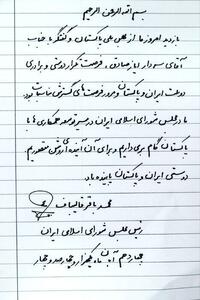 بسم الله الرحمن الرحیم
بازدید امروز ما از مجلس ملی پاکستان و گفتگو با جناب
آقای سردار ایاز صادق، فرصت تکرار دوستی و برادری
دو ملت ایران و پاکستان و مرور فرصت‌های گسترش مناسبات بود.
ما در مجلس شورای اسلامی ایران در مسیر توسعه همکاری ها با
پاکستان گام برمی داریم و برای آن آینده‌ی روشن متصوریم.
دوستی ایران و پاکستان پاینده باد.
محمد باقر قالیباف
رئیس مجلس شورای اسلامی ایران
چهاردهم آبان ماه یکهزار و چهارصد و چهار